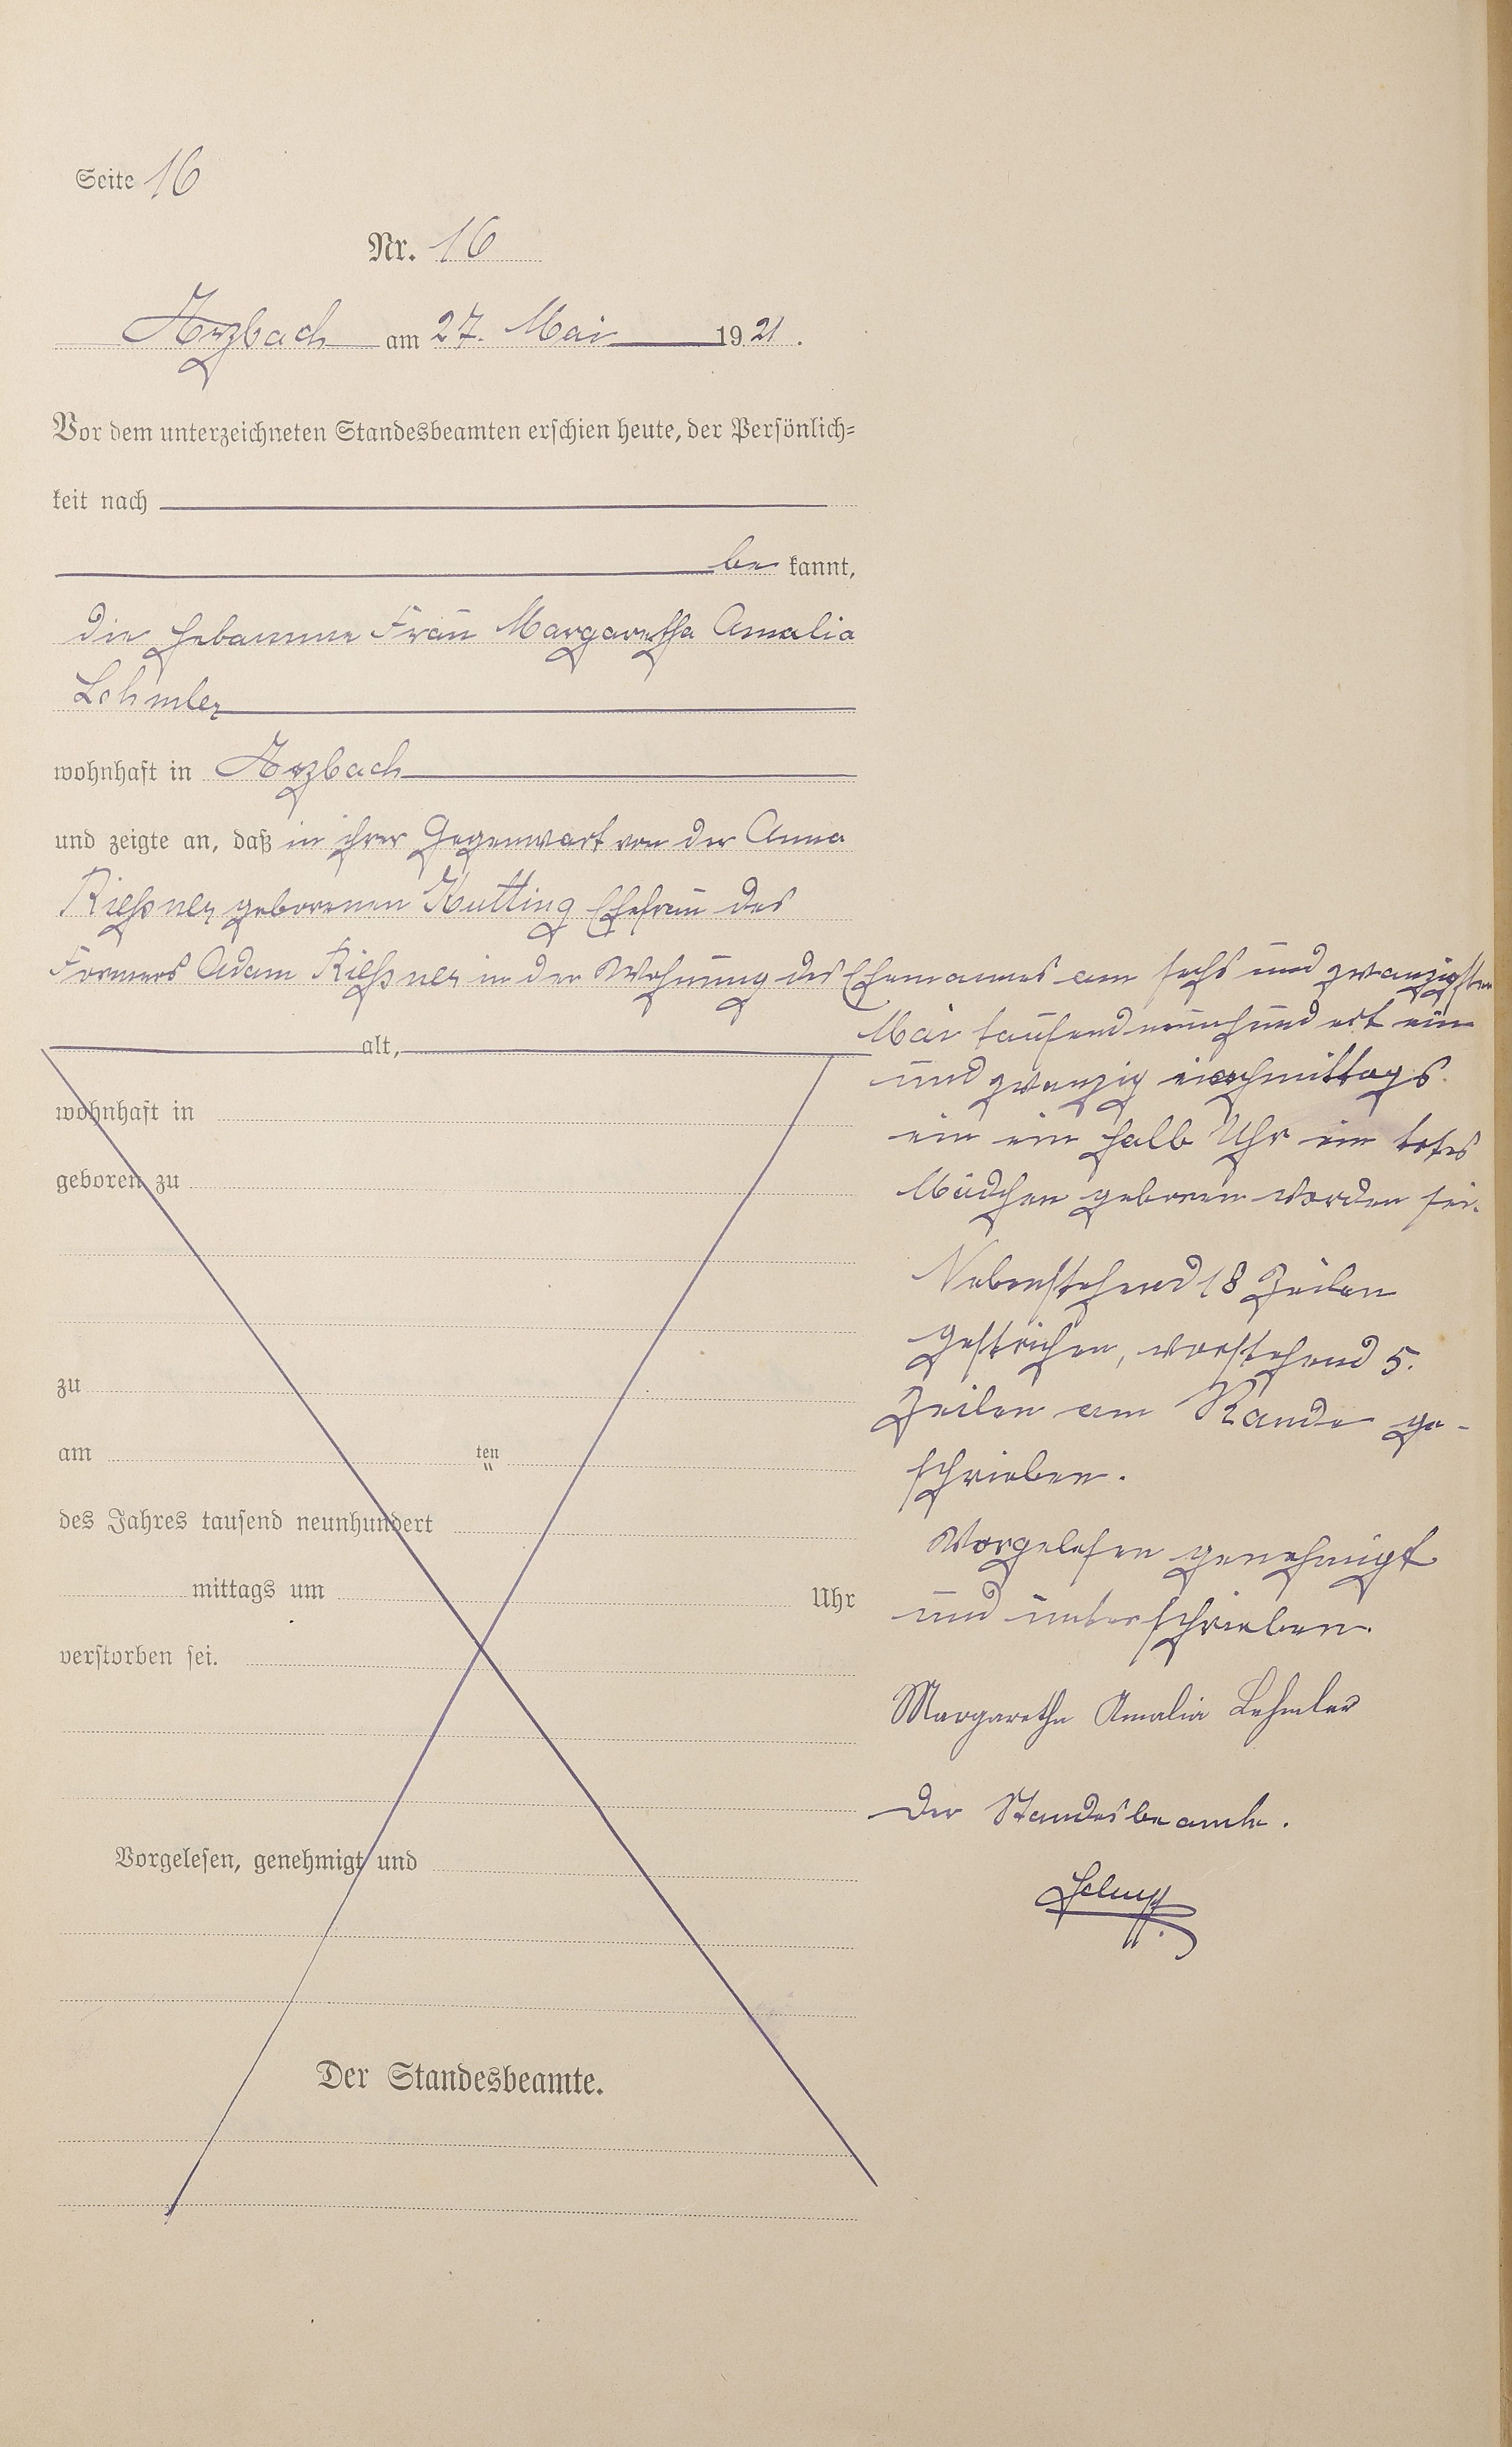 Seite 16
Nr. 16
Arzbach am 27. Mai 1921.
Vor dem unterzeichneten Standesbeamten erschien heute, der Persönlich=
keit nach
be kannt,
die Hebamme Frau Margaretha Amalia
Lehmler
wohnhaft in Arzbach
und zeigte an, daß in ihrer Gegenwart von der Anna
Rießner geborenen Kutting Ehefrau des
Formers Adam Rießner in der Wohnung des Ehemannes am sechs und zwanzigsten
Mai tausend neunhundert ein
und zwanzig nachmittags
ein ein halb Uhr ein totes
Mädchen geboren worden sei.
alt,
wohnhaft in
geboren zu
zu
am ten
des Jahres tausend neunhundert
mittags um Uhr
verstorben sei.
Vorgelesen, genehmigt und
Der Standesbeamte.
Nebenstehend 18 Zeilen
gestrichen, vorstehend 5.
Zeilen am Rande ge-
schrieben.
Vorgelesen genehmigt
und unterschrieben.
Margaretha Amalia Lehmler
Der Standesbeamte.